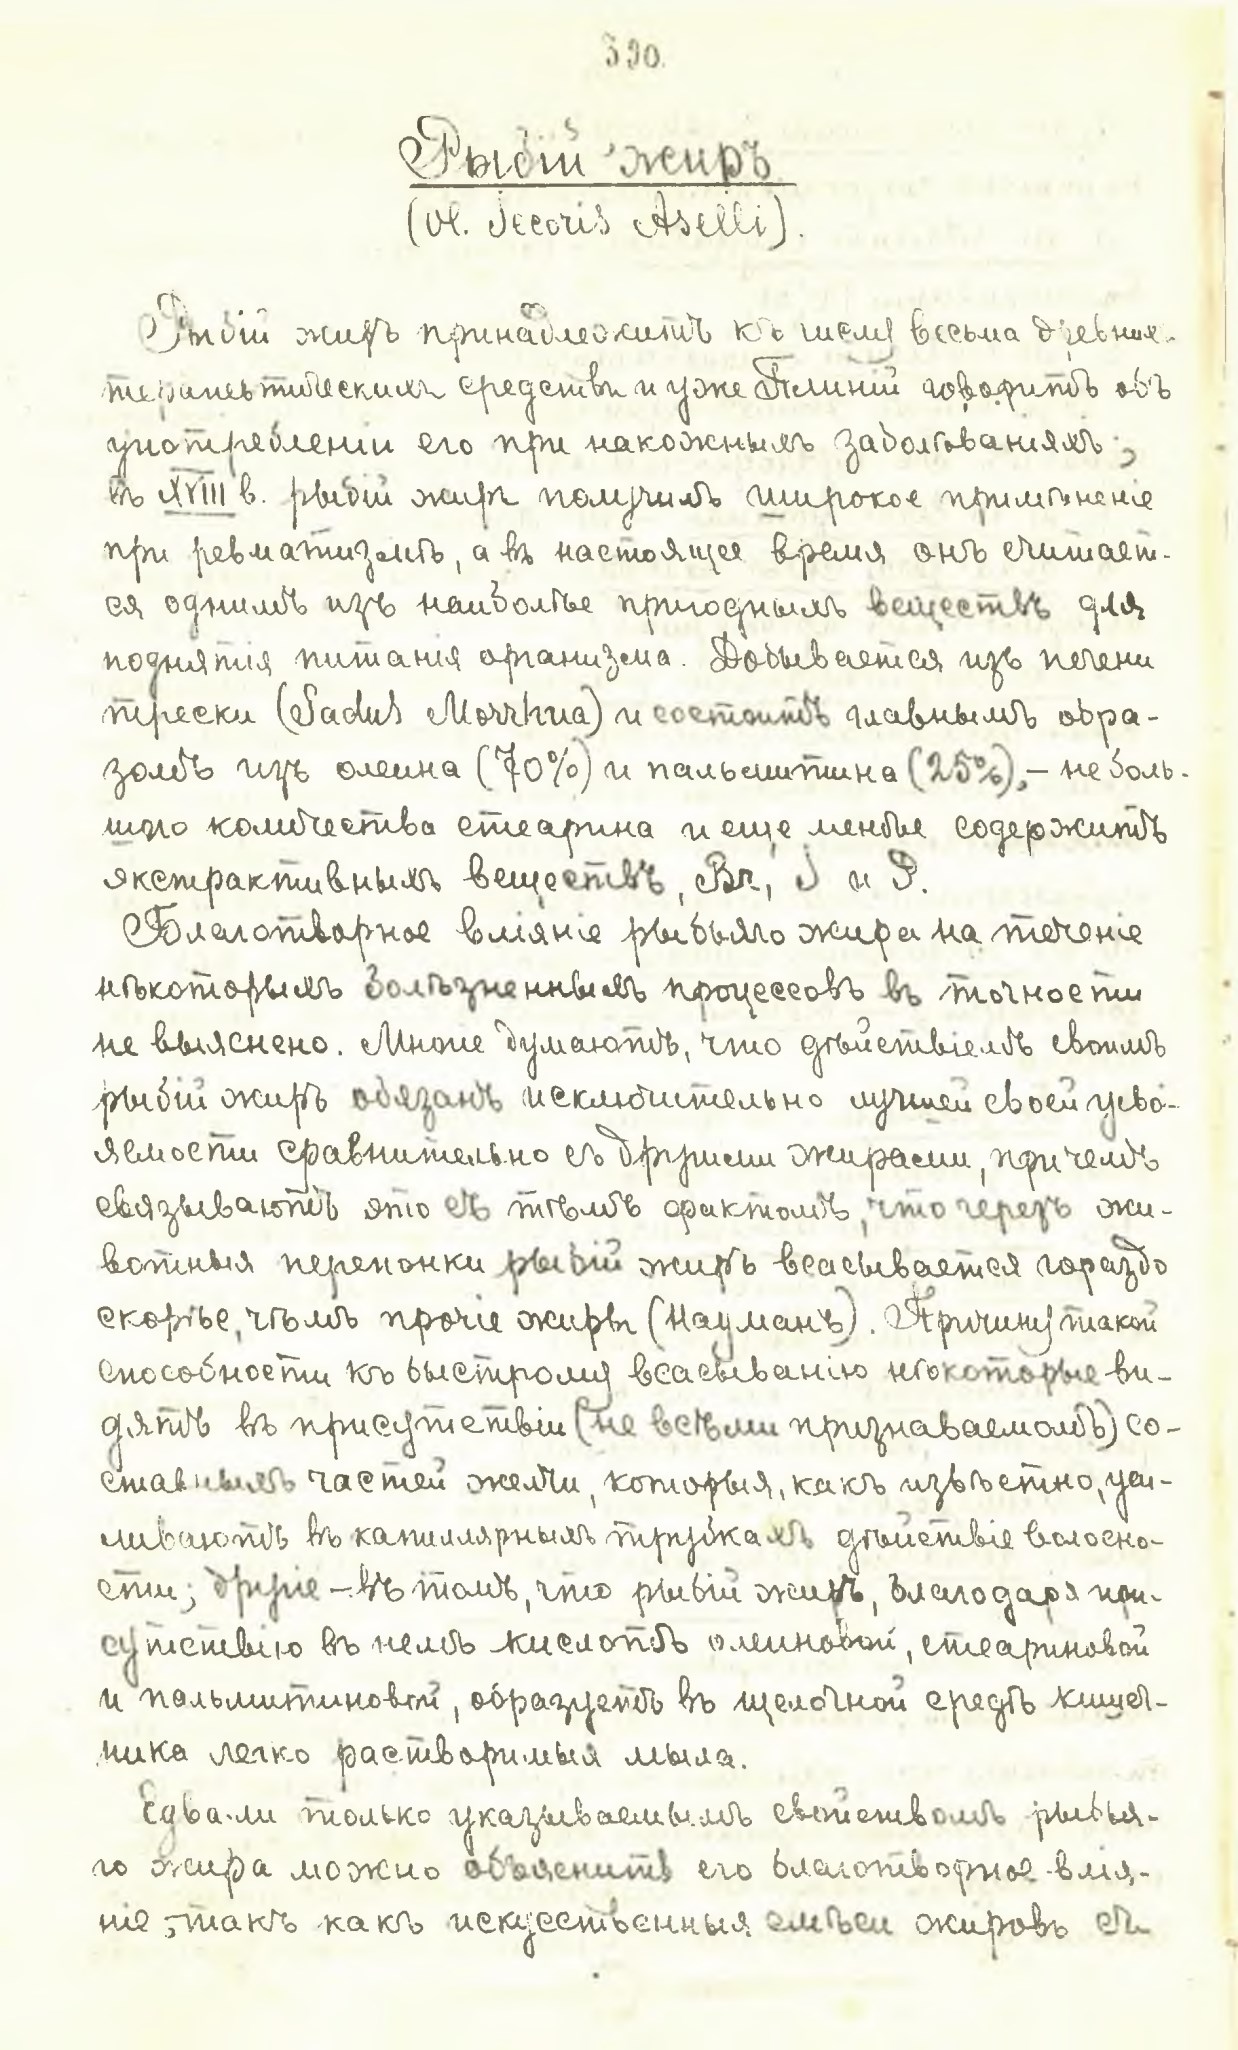 390.
Рыбій жиръ
(Ol. Jecoris Aselli).
Рыбій жиръ принадлежитъ къ числу весьма древнихъ
терапевтическихъ средствъ и уже Плиній говоритъ объ
употребленіи его при накожныхъ заболѣваніяхъ;
въ XVIII в. рыбій жиръ получилъ широкое примѣненіе
при ревматизмѣ, а въ настоящее время онъ считает-
ся однимъ изъ наиболѣе пригодныхъ веществъ для
поднятія питанія организма. Добывается изъ печени
трески (Gadus Morrhua) и состоитъ главнымъ обра-
зомъ изъ олеина (70%) и пальмитина (25%), – неболь-
шого количества стеарина и еще менѣе содержитъ
экстрактивныхъ веществъ, Br, J и P.
Благотворное вліяніе рыбьяго жира на теченіе
нѣкоторыхъ болѣзненныхъ процессовъ въ точности
не выяснено. Многіе думаютъ, что дѣйствіемъ своимъ
рыбій жиръ обязанъ исключительно лучшей своей усво-
яемости сравнительно съ другими жирами, причемъ
связываютъ это съ тѣмъ фактомъ, что черезъ жи-
вотныя перепонки рыбій жиръ всасывается гораздо
скорѣе, чѣмъ прочіе жиры (Науманъ). Причину такой
способности къ быстрому всасыванію нѣкоторые ви-
дятъ въ присутствіи (не всѣми признаваемомъ) со-
ставныхъ частей желчи, которыя, какъ извѣстно, уси-
ливаютъ въ капиллярныхъ трубкахъ дѣйствіе волосно-
сти; другіе – въ томъ, что рыбій жиръ, благодаря при-
сутствію въ немъ кислотъ олеиновой, стеариновой
и пальмитиновой, образуетъ въ щелочной средѣ кишеч-
ника легко растворимыя мыла.
Едва-ли только указываемымъ свойствомъ рыбья-
го жира можно объяснить его благотворное влія-
ніе, такъ какъ искусственныя смѣси жировъ съ